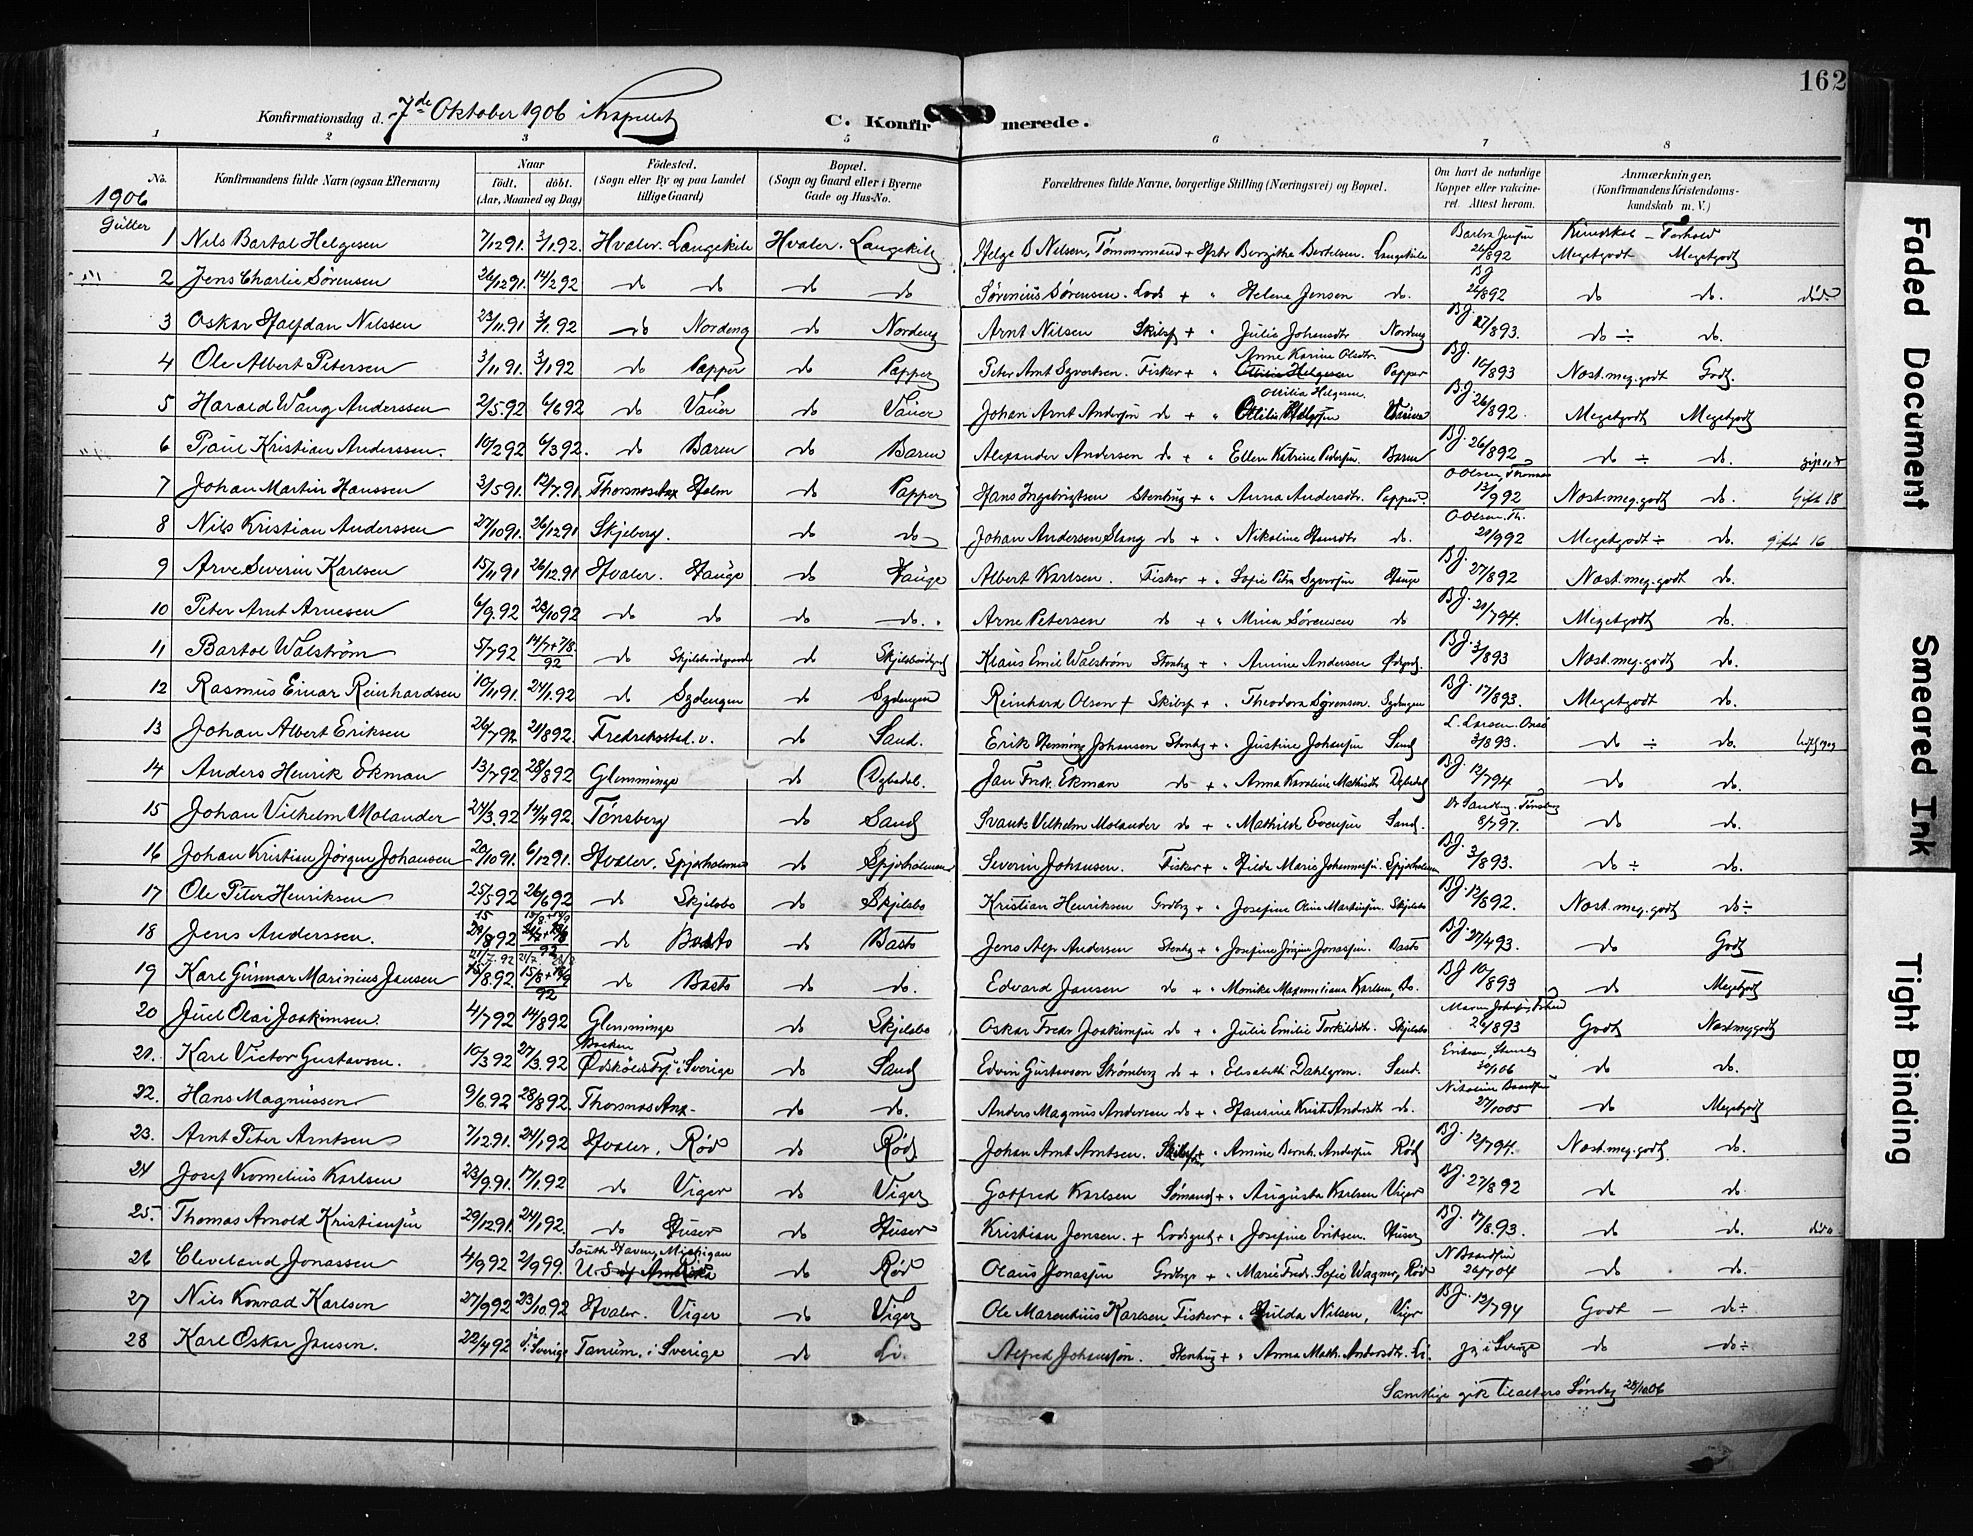 162
Konfirmationsdag d. 7de Oktober 1906 i Kapellet
C. Konfirmerede.
1 2 3 5 6 7 8
No. Konfirmandens fulde Navn (ogsaa Efternavn) Naar født. døbt. (Aar, Maaned og Dag) Fødested. (Sogn eller By og paa Landet tillige Gaard) Bopæl. (Sogn og Gaard eller i Byerne Gade og Hus-No. Forældrenes fulde Navne, borgerlige Stilling (Næringsvei) og Bopæl. Om havt de naturlige Kopper eller vakcineret. Attest herom. Anmærkninger. (Konfirmandens Kristendomskundskab m. V.)
1906
Gutter
Kundskab – Forhold
1 Nils Bartol Helgesen 7/12 91. 3/1 92. Hvaler. Langekile Hvaler. Langekile Helge B Nilsen, Tømmermand + Hstr Bergithe Bertelsen. Langekile 26/8 92 Megetgodt Megetgodt
2 Jens Charlie Sørensen 26/12 91 14/2 92 do do do do Sørenius Sørensen. Lods + " Helene Jensen do. BJ 26/8 92 do do. død.
3 Oskar Halfdan Nilssen 23/11 91 3/1 92 do Nordeng do Nordeng Arnt Nilsen Skibsf + " Julie Johansdtr Nordeng BJ. 27/8 93. do ÷ do.
4 Ole Albert Petersen 3/11 91. 3/1 92 do Papper do Papper Peter Arnt Syvertsen. Fisker + " Anne Karine Olsdtr. Papper BJ. 10/8 93 Næst.meg.godt Godt.
5 Harald Wang Anderssen 2/5 92 6/6 92 do Vauer do Vauer Johan Arnt Andersen do + " Ottilia Helgesen BJ 26/8 92. Megetgodt Megetgodt
6 Paul Kristian Anderssen. 10/2 92 6/3 92. do Baren do Baren Alexander Andersen do + " Ellen Katrine Pedersen. Baren BJ. 26/8 92 do ÷ do.
7 Johan Martin Hanssen 3/5 91. 12/7 91. Thorsnes Anx Holm do Papper Hans Ingebrigtsen Stenhug + " Anna Andersdtr. Papper. O Olsen, Thorsnes 13/9 92 Næst.meg.godt do. Gift 18
8 Nils Kristian Anderssen 27/10 91. 26/12 91 Skjeberg. do do Johan Andersen Slang do + " Nikoline Hansdtr do. O Olsen. Th. 20/9 92 Megetgodt ÷ do. gift 16
9 Arve Severin Karlsen 15/11 91 26/12 91 Hvaler. Hauge do Hauge Albert Karlsen. Fisker + " Sofie Petra Syversen Hauge BJ. 27/8 92 Næst.meg.godt do.
10 Peter Arnt Arnesen 6/9. 92 23/10 92 do do do do. Arne Petersen do + " Mina Sørensen do BJ. 20/7 94. Megetgodt do.
11 Bartol Walstrøm 5/7 92 14/7 + 7/8. 92 do do Klaus Emil Walstrøm Stenhg + " Amine Andersen BJ 3/8 93 Næst.meg.godt do.
12 Rasmus Einar Reinhardsen 10/11 91. 24/1. 92 do Sydengen do Sydengen Reinhard Olsen + Skibsf + " Theodora Sørensen. Sydengen BJ. 17/8 93. Megetgodt do.
13 Johan Albert Eriksen 26/7 92 21/8 92. Fredrikstad. v. do Sand. Erik Henning Johansen Stenhg + " Justine Johansen Sand L. Larsen. Onsø 3/8 93. do ÷ do.
14 Anders Henrik Ekman 13/7 92 28/8 92 Glemminge do Dybedal. Jan Fredr. Ekman do + " Anna Karoline Mathisdtr Dybedal BJ. 12/7 94 do do.
15 Johan Vilhelm Molander 24/3. 92 14/4 92. Tønsberg do Sand Svante Vilhelm Molander do + " Mathilde Evensen Sand. Dr Sandberg. Tønsberg 8/7 97. do do.
16 Johan Kristian Jørgen Johansen 20/10 91. 6/12 91. Hvaler. Spjærholmen do Spjærholmen Severin Johansen. Fisker + " Hilda Marie Johannesen. Spjærholmen BJ. 3/8 93. do ÷ do.
17 Ole Peter Henriksen 25/5 92 26/6 92 do Skjelsbo do Skjelsbo Kristian Henriksen Grdbrg + " Josefine Oline Martinsen. Skjelsbo BJ. 12/8 92. Næst.meg.godt do ÷
18 Jens Anderssen. do Basto do Basto Jens Alfr Andersen Stenhg + " Josefine Jonassen. Basto BJ. 27/4 93. do Godt
19 Karl Gunnar Marinius Jansen do Basto do do. Edvard Jansen do + " Monika Maxemiliana Karlsen, Do. BJ 10/8 93 do Megetgodt
20 Juel Olai Joakimsen. 4/7 92 14/8 92 Glemminge do Skjelsbo Oskar Fredr Joakimsen do + " Julie Emilie Torkildsdtr. Skjelsbo 26/8 93 Godt Næstmeggodt
21. Karl Victor Gustavsen. 10/3 92 27/3. 92 Backen Ødskölds i Sverige do Sand Edvin Gustavson Strømberg do + " Elisabeth Dahlgren. Sand. do do.
22. Hans Magnussen 9/6. 92 28/8 92. Thorsnes Anx- do do. Anders Magnus Andersen do + " Hansine Krist. Andersdtr do. 27/10 05 do Megetgodt
23. Arnt Peter Arntsen 7/12. 91. 24/1 92 Hvaler, Rød do Rød. Johan Arnt Arntsen. Skibsf + " Amine Bernh. Andersen Rød BJ. 12/7 94. Næst.meg.godt do.
24 Josef Kornelius Karlsen 23/9. 91. 17/1. 92 do Viger do Viger Gotfred Karlsen Sømand + " Augusta Karlsen Viger BJ. 27/8 92 do do
25. Thomas Arnold Kristiansen 29/12 91. 24/1 92. do Huser do Huser Kristian Jensen. + Lodsgut + " Josefine Eriksen. Huser BJ. 17/8. 93. do do. død
26 Cleveland Jonassen 4/9 92 2/9 99. South Haven, Michigan U.S. of Amerika do Rød Olaus Jonassen Grdbrgr + " Marie Fredr. Sofie Wagner, Rød 26/7 04 do do.
27 Nils Konrad Karlsen 27/9 92 23/10. 92 Hvaler. Viger do Viger Ole Marentius Karlsen Fisker + " Hulda Nilsen, Viger BJ. 12/7 94 Godt — do ÷
28 Karl Oskar Jansen. 22/4 92 i Sverige Tanum. i Sverige do Li. Alfred Johansson. Stenhug + " Anna Math. Andersdtr. Li. ja, i Sverige do do ÷
Samtlige gik til alters Søndag 28/10 06
Faded Document
Smeared Ink
Tight Binding